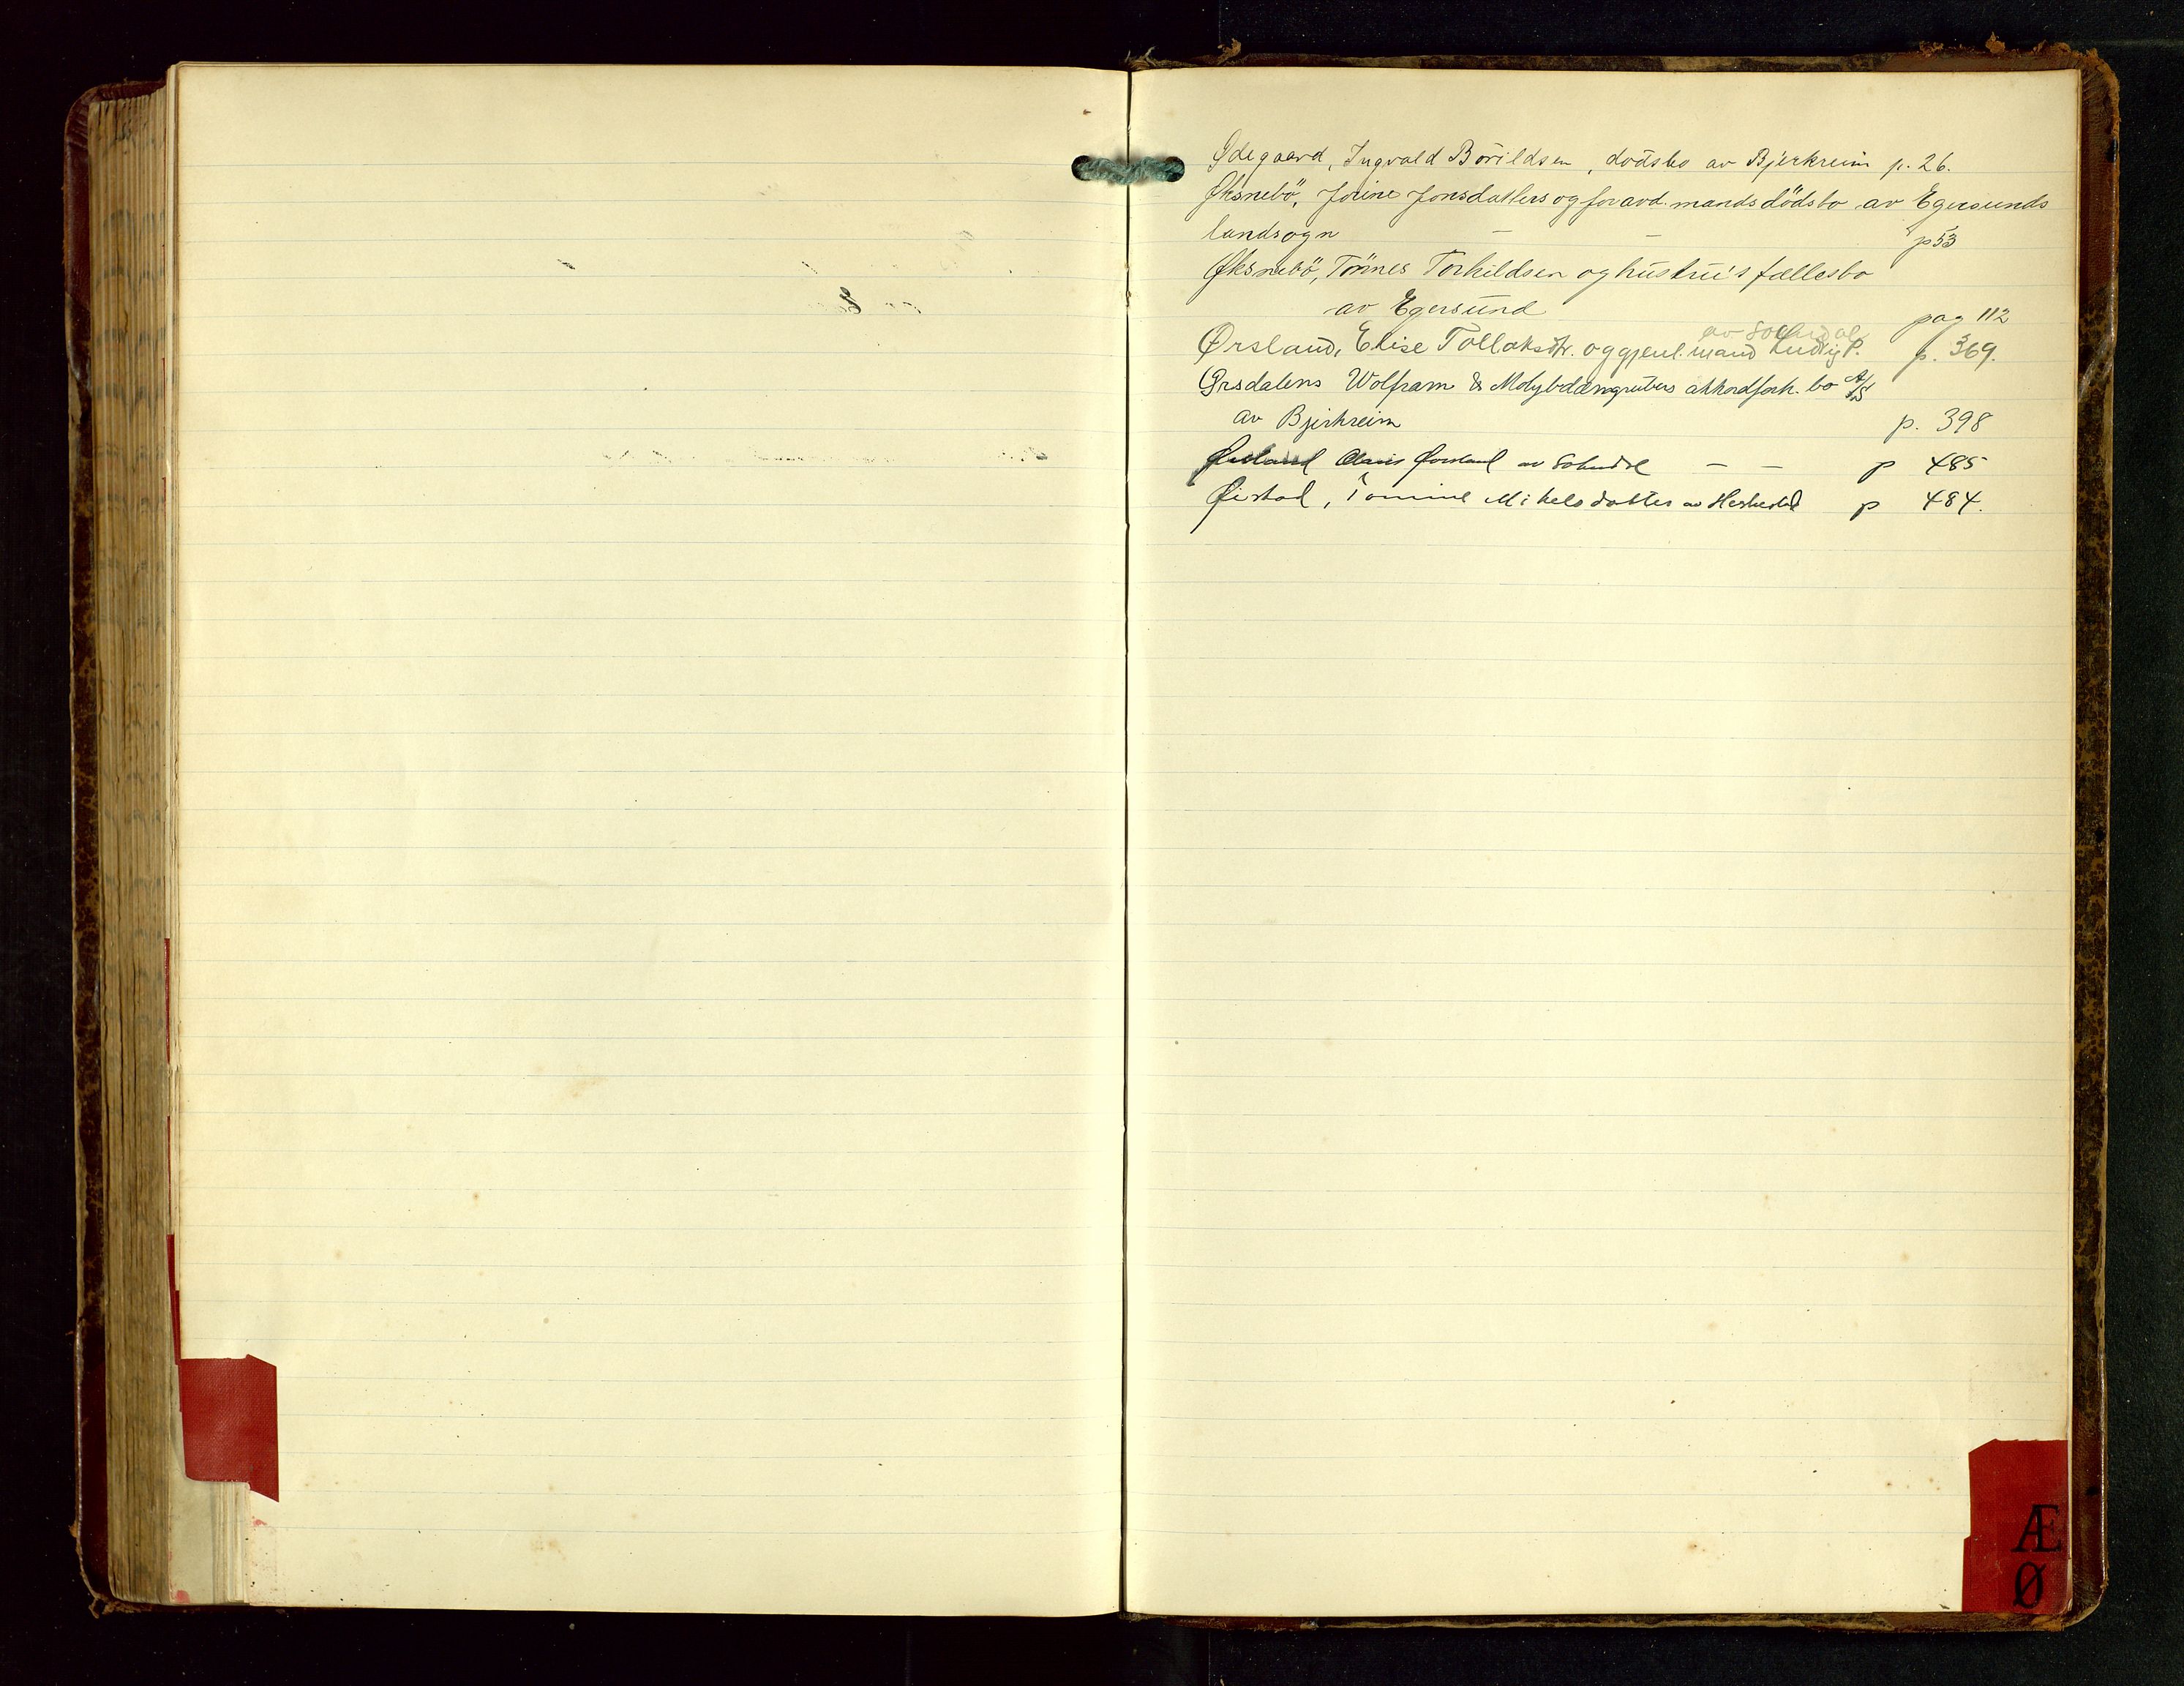 Ødegaard, Ingvald Borildsen, dødsbo av Bjerkreim p. 26.
Øksnebö, Jorine Jonsdatters og foravd. mands dödsbo av Egersunds
landsogn — — p 53
Øksnebö, Tönnes Torkildsen og hustru's fællesbo
av Egersund pag 112
av Sokndal
Ørsland, Elise Tollaksdtr. og gjenl. mand Ludvig P. p. 369.
Ørsdalens Wolfram & Molybdængrubers akkordforh. bo A/S
av Bjerkreim p. 398
Ørsland av Sokndal — — p 485
Øistad, Tomine Mikelsdatter av Heskestad p 484.
Æ
Ø